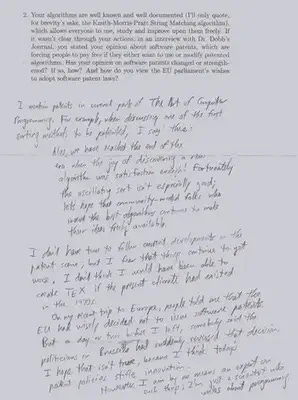 2. Your algorithms are well known and well documented (I'll only quote,
for brevity's sake, the Knuth-Morris-Pratt String Matching algorithm),
which allows everyone to use, study and improve upon them freely. If
it wasn't clear through your actions, in an interview with Dr. Dobb's
Journal, you stated your opinion about software patents, which are
forcing people to pay fees if they either want to use or modify patented
algorithms. Has your opinion on software patents changed or strength-
ened? If so, how? And how do you view the EU parliament's wishes
to adopt software patent laws?
I mention patents in several parts of The Art of Computer
Programming. For example, when discussing one of the first
sorting methods to be patented, I say this:
Alas, we have reached the end of the
era when the joy of discovering a new
algorithm was satisfaction enough! Fortunately
the oscillating sort isn't especially good;
let's hope that community-minded folks who
invent the best algorithms continue to make
their ideas freely available.
I don't have time to follow current developments in the
patent scene; but I fear that things continue to get
worse. I don't think I would have been able to
create TEX if the present climate had existed
in the 1970s.
On my recent trip to Europe, people told me that the
EU had wisely decided not to issue software patents.
But a day or two before I left, somebody said the
politicians in Brussels had suddenly reversed that decision.
I hope that isn't true, because I think today's
patent policies stifle innovation.
However, I am by no means an expert on
such things; I'm just a scientist who
writes about programming